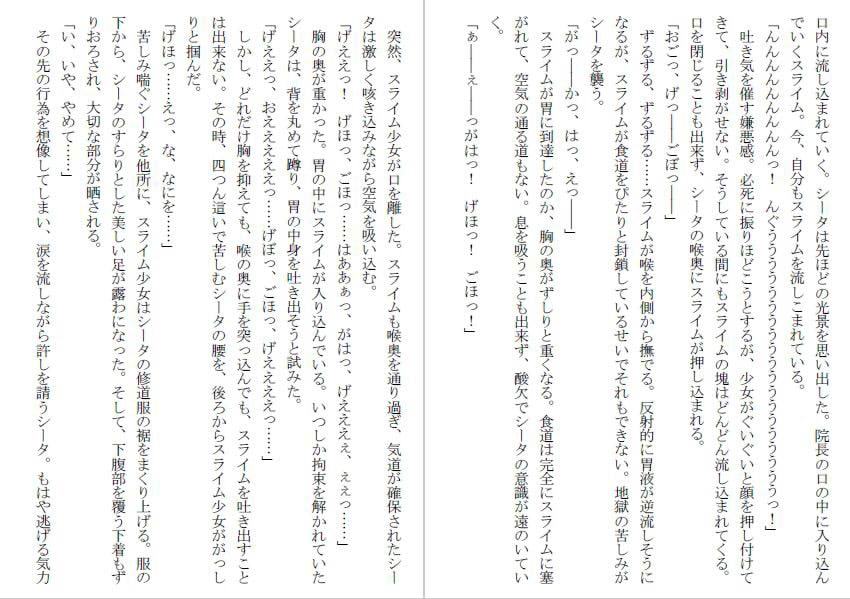 口内に流し込まれていく。シータは先ほどの光景を思い出した。院長の口の中に入り込ん
でいくスライム。今、自分もスライムを流しこまれている。
「んんんんんんんんっ！　んぐぅうううううううううううううううううっ！」
吐き気を催す嫌悪感。必死に振りほどこうとするが、少女がぐいぐいと顔を押し付けて
きて、引き剥がせない。そうしている間にもスライムの塊はどんどん流し込まれてくる。
口を閉じることも出来ず、シータの喉奥にスライムが押し込まれる。
「おごっ、げっ――ごぼっ――」
ずるずる、ずるずる……スライムが喉を内側から撫でる。反射的に胃液が逆流しそうに
なるが、スライムが食道をぴたりと封鎖しているせいでそれもできない。地獄の苦しみが
シータを襲う。
「がっ――かっ、はっ、えっ――」
スライムが胃に到達したのか、胸の奥がずしりと重くなる。食道は完全にスライムに塞
がれて、空気の通る道もない。息を吸うことも出来ず、酸欠でシータの意識が遠のいてい
く。
「ぁ――ぇ――っがはっ！　げほっ！　ごほっ！」
突然、スライム少女が口を離した。スライムも喉奥を通り過ぎ、気道が確保されたシー
タは激しく咳き込みながら空気を吸い込む。
「げええっ！　げほっ、ごほっ……はああぁっ、がはっ、げえええぇ、ぇえっ……」
胸の奥が重かった。胃の中にスライムが入り込んでいる。いつしか拘束を解かれていた
シータは、背を丸めて蹲り、胃の中身を吐き出そうと試みた。
「げええっ、おえええええっ……げぼっ、ごほっ、げええええっ……」
しかし、どれだけ胸を抑えても、喉の奥に手を突っ込んでも、スライムを吐き出すこと
は出来ない。その時、四つん這いで苦しむシータの腰を、後ろからスライム少女ががっし
りと掴んだ。
「げほっ……えっ、な、なにを……」
苦しみ喘ぐシータを他所に、スライム少女はシータの修道服の裾をまくり上げる。服の
下から、シータのすらりとした美しい足が露わになった。そして、下腹部を覆う下着もず
りおろされ、大切な部分が晒される。
「い、いや、やめて……」
その先の行為を想像してしまい、涙を流しながら許しを請うシータ。もはや逃げる気力